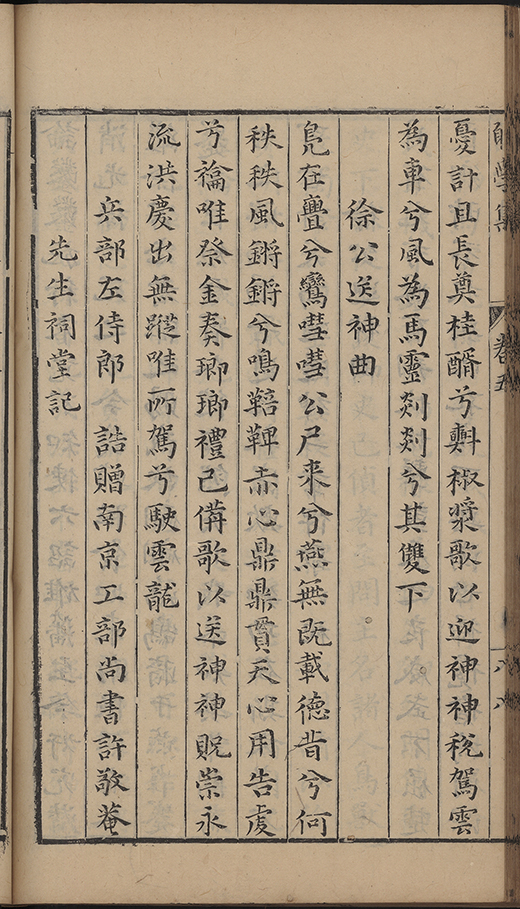 憂計且長奠桂醑兮㪺椒漿歌以迎神神稅駕雲
為車兮風為馬靈剡剡兮其雙下
徐公送神曲
鳧在亹兮鸞嘒嘒公尸来兮燕無既載德音兮何
秩秩風鏘鏘兮鳴鞳鞞赤心鼎鼎貫天心用告虔
兮禴唯祭金奏瑯瑯禮已備歌以送神神貺崇永
流洪慶出無蹤唯所駕兮駛雲龍
兵部左侍郎今 誥贈南京工部尚書許敬菴
先生祠堂記
卷五
八八